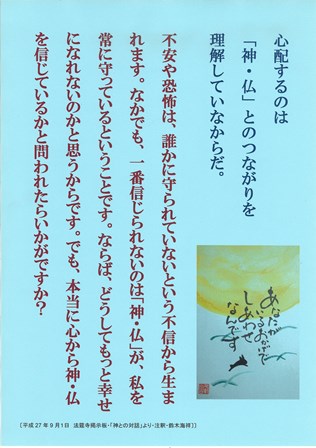 心配するのは
「神・仏」とのつながりを
理解していなからだ。
不安や恐怖は、誰かに守られていないという不信から生ま
れます。なかでも、一番信じられないのは「神・仏」が、私を
常に守っているということです。ならば、どうしてもっと幸せ
になれないのかと思うからです。でも、本当に心から神・仏
を信じているかと問われたらいかがですか？
あなたが
いるおかげで
しあわせ
なんです
［平成27年9月1日 法龍寺掲示板・「神との対話」より・注釈・鈴木海祥］